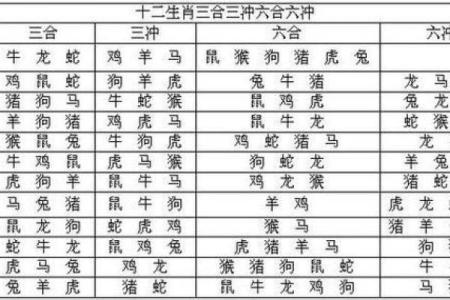 十二生肖三合三冲六合六冲
三合 三冲 六合 六冲
牛龙蛇 鸡羊马 鼠猴狗猪虎兔
鸡鼠蛇 狗羊虎 兔牛猪 龙马
猪狗马 牛蛇猴 鼠鸡虎 兔龙
羊狗猪 鸡虎马 鼠牛龙 蛇猴
猴鼠兔 牛狗虎 鸡蛇猪马 龙
牛鸡鼠 虎马猴 狗蛇龙
虎狗羊 鼠牛马 鸡龙猴 猪蛇
马兔猪 鼠牛狗 羊鸡 虎龙
鼠龙狗 蛇虎鸡 猴马 猪羊
蛇牛龙 鼠鸡兔 虎猪羊马 狗
虎马兔 鸡龙 猴猪狗蛇鼠 牛
兔羊虎 蛇猪 鼠牛龙鸡狗 马